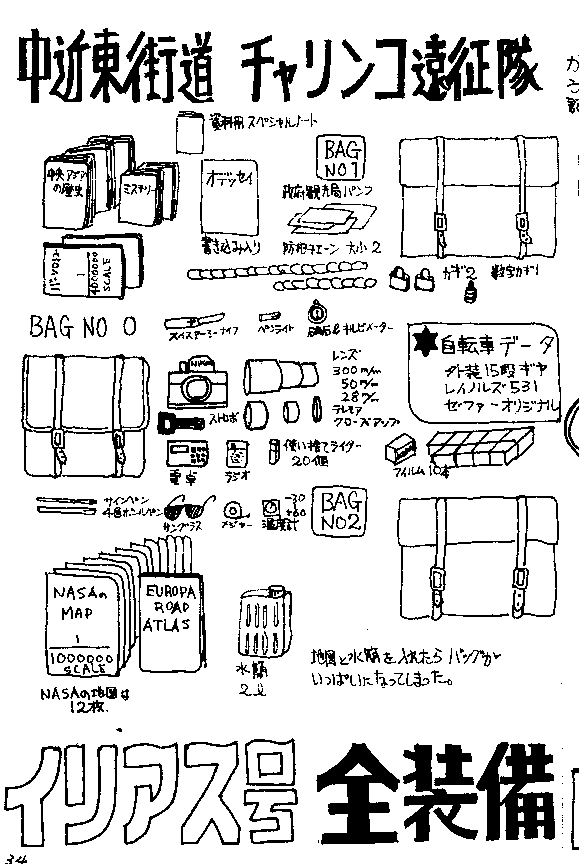 中近東街道 チャリンコ遠征隊
資料用スペシャルノート
中央アジア
の歴史
ミステリー
オデッセイ
書き込み入り
BAG
NO1
政府観光局パンフ
防犯チェーン 大小2
カギ2
数字カギ1
1
4000000
SCALE
BAG NO 0
スイスアーミーナイフ
ペンライト
自転車データ
外装15段ギヤ
レイノルズ531
ゼファーオリジナル
NIKON
レンズ
300m/m
50m/m
28m/m
クローズアップ
ストロボ
電卓
ラジオ
使い捨てライター
20個
フィルム10本
サインペン
4色ボールペン
サングラス
メジャー
温度計
-30
+60
BAG
NO2
NASAの
MAP
1
1000000
SCALE
EUROPA
ROAD
ATLAS
NASAの地図は
12枚.
水筒
2ℓ
地図と水筒を入れたら バッグが
いっぱいになってしまった。
イリアス号 全装備
34